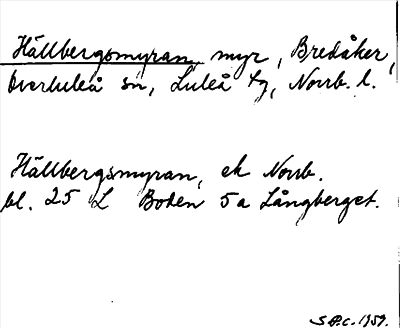 Hällbergsmyran, myr, Bredåker,
Överluleå sn, Luleå tg, Norrb. l.
Hällbergsmyran, ek Norrb.
bl. 25 L Boden 5a Långberget.
S.P.C. 1959.